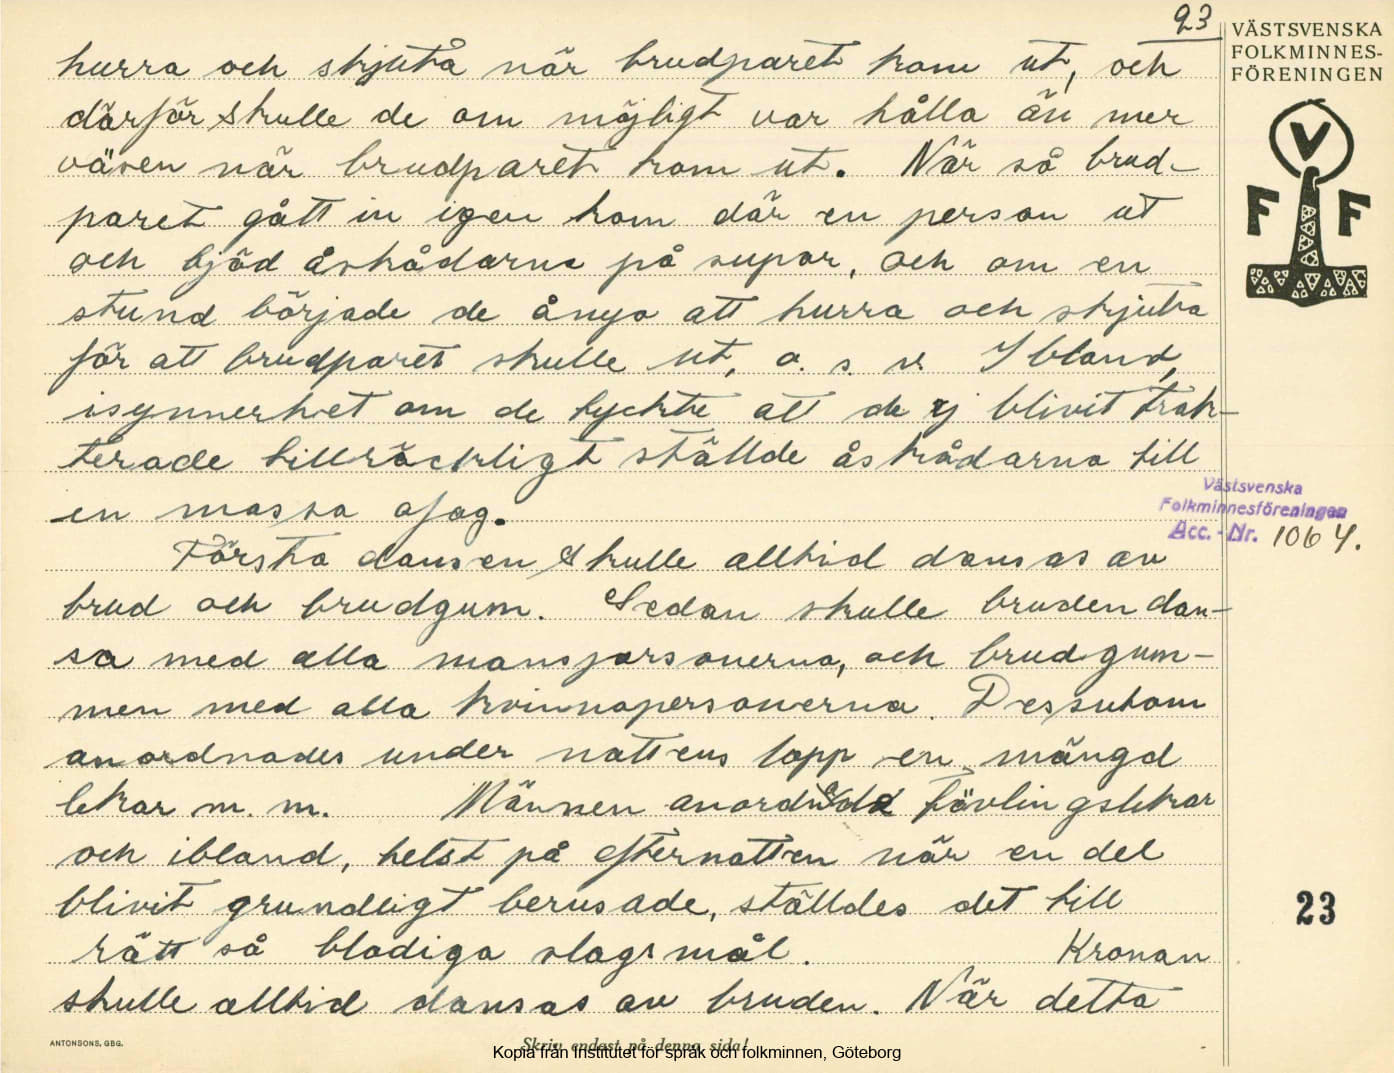 23
VÄSTSVENSKA
FOLKMINNES-
FÖRENINGEN
V
F F
hurra och skjuta när brudparet kom ut, och
därför skulle de om möjligt var hålla än mer
väsen när brudparet kom ut. När så brud-
paret gått in igen kom där en person ut
och bjöd åskådarna på supar, och om en
stund började de ånyo att hurra och skjuta
för att brudparet skulle ut, o. s. v. Ibland,
isynnerhet om de tyckte att de ej blivit trak-
terade tillräckligt ställde åskådarna till
en massa ofog.
Västsvenska
Folkminnesföreningen
Acc. - Nr. 1064.
Första dansen skulle alltid dansas av
brud och brudgum. Sedan skulle bruden dan-
sa med alla manspersonerna, och brudgum-
men med alla kvinnopersonerna. Dessutom
anordnades under nattens lopp en mängd
lekar m. m. Männen anordnade tävlingslekar
och ibland, helst på efternatten när en del
blivit grundligt berusade, ställdes det till
rätt så blodiga slagsmål. Kronan
skulle alltid dansas av bruden. När detta
23
ANTONSONS, GBG.
Skriv endast på denna sida!
Kopia från Institutet för språk och folkminnen, Göteborg